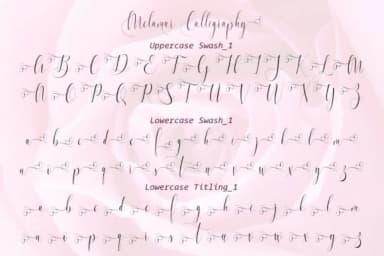 Melamar Calligraphy
Uppercase Swash_1
A B C D E F G H I J K L M
N O P Q R S T U V U V X Y Z
Lowercase Swash_1
a b c d e f g h i j k l m
n o p q r s t u v w x y z
Lowercase Titling_1
a b c d e f g h i j k l m
n o p q r s t u v w x y z